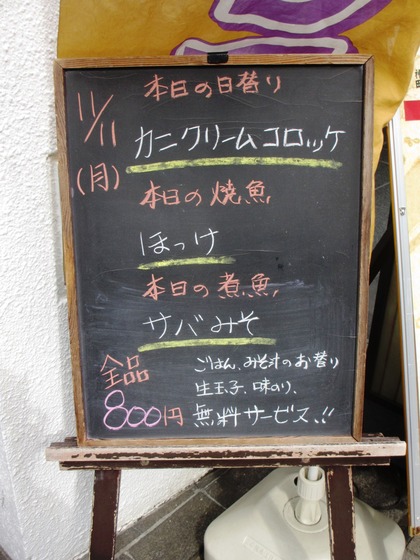 11/11
(月)
本日の日替り
カニクリームコロッケ
本日の焼魚
ほっけ
本日の煮魚
サバみそ
全品
800円
ごはん、みそ汁のお替り
生玉子、味のり、
無料サービス!!